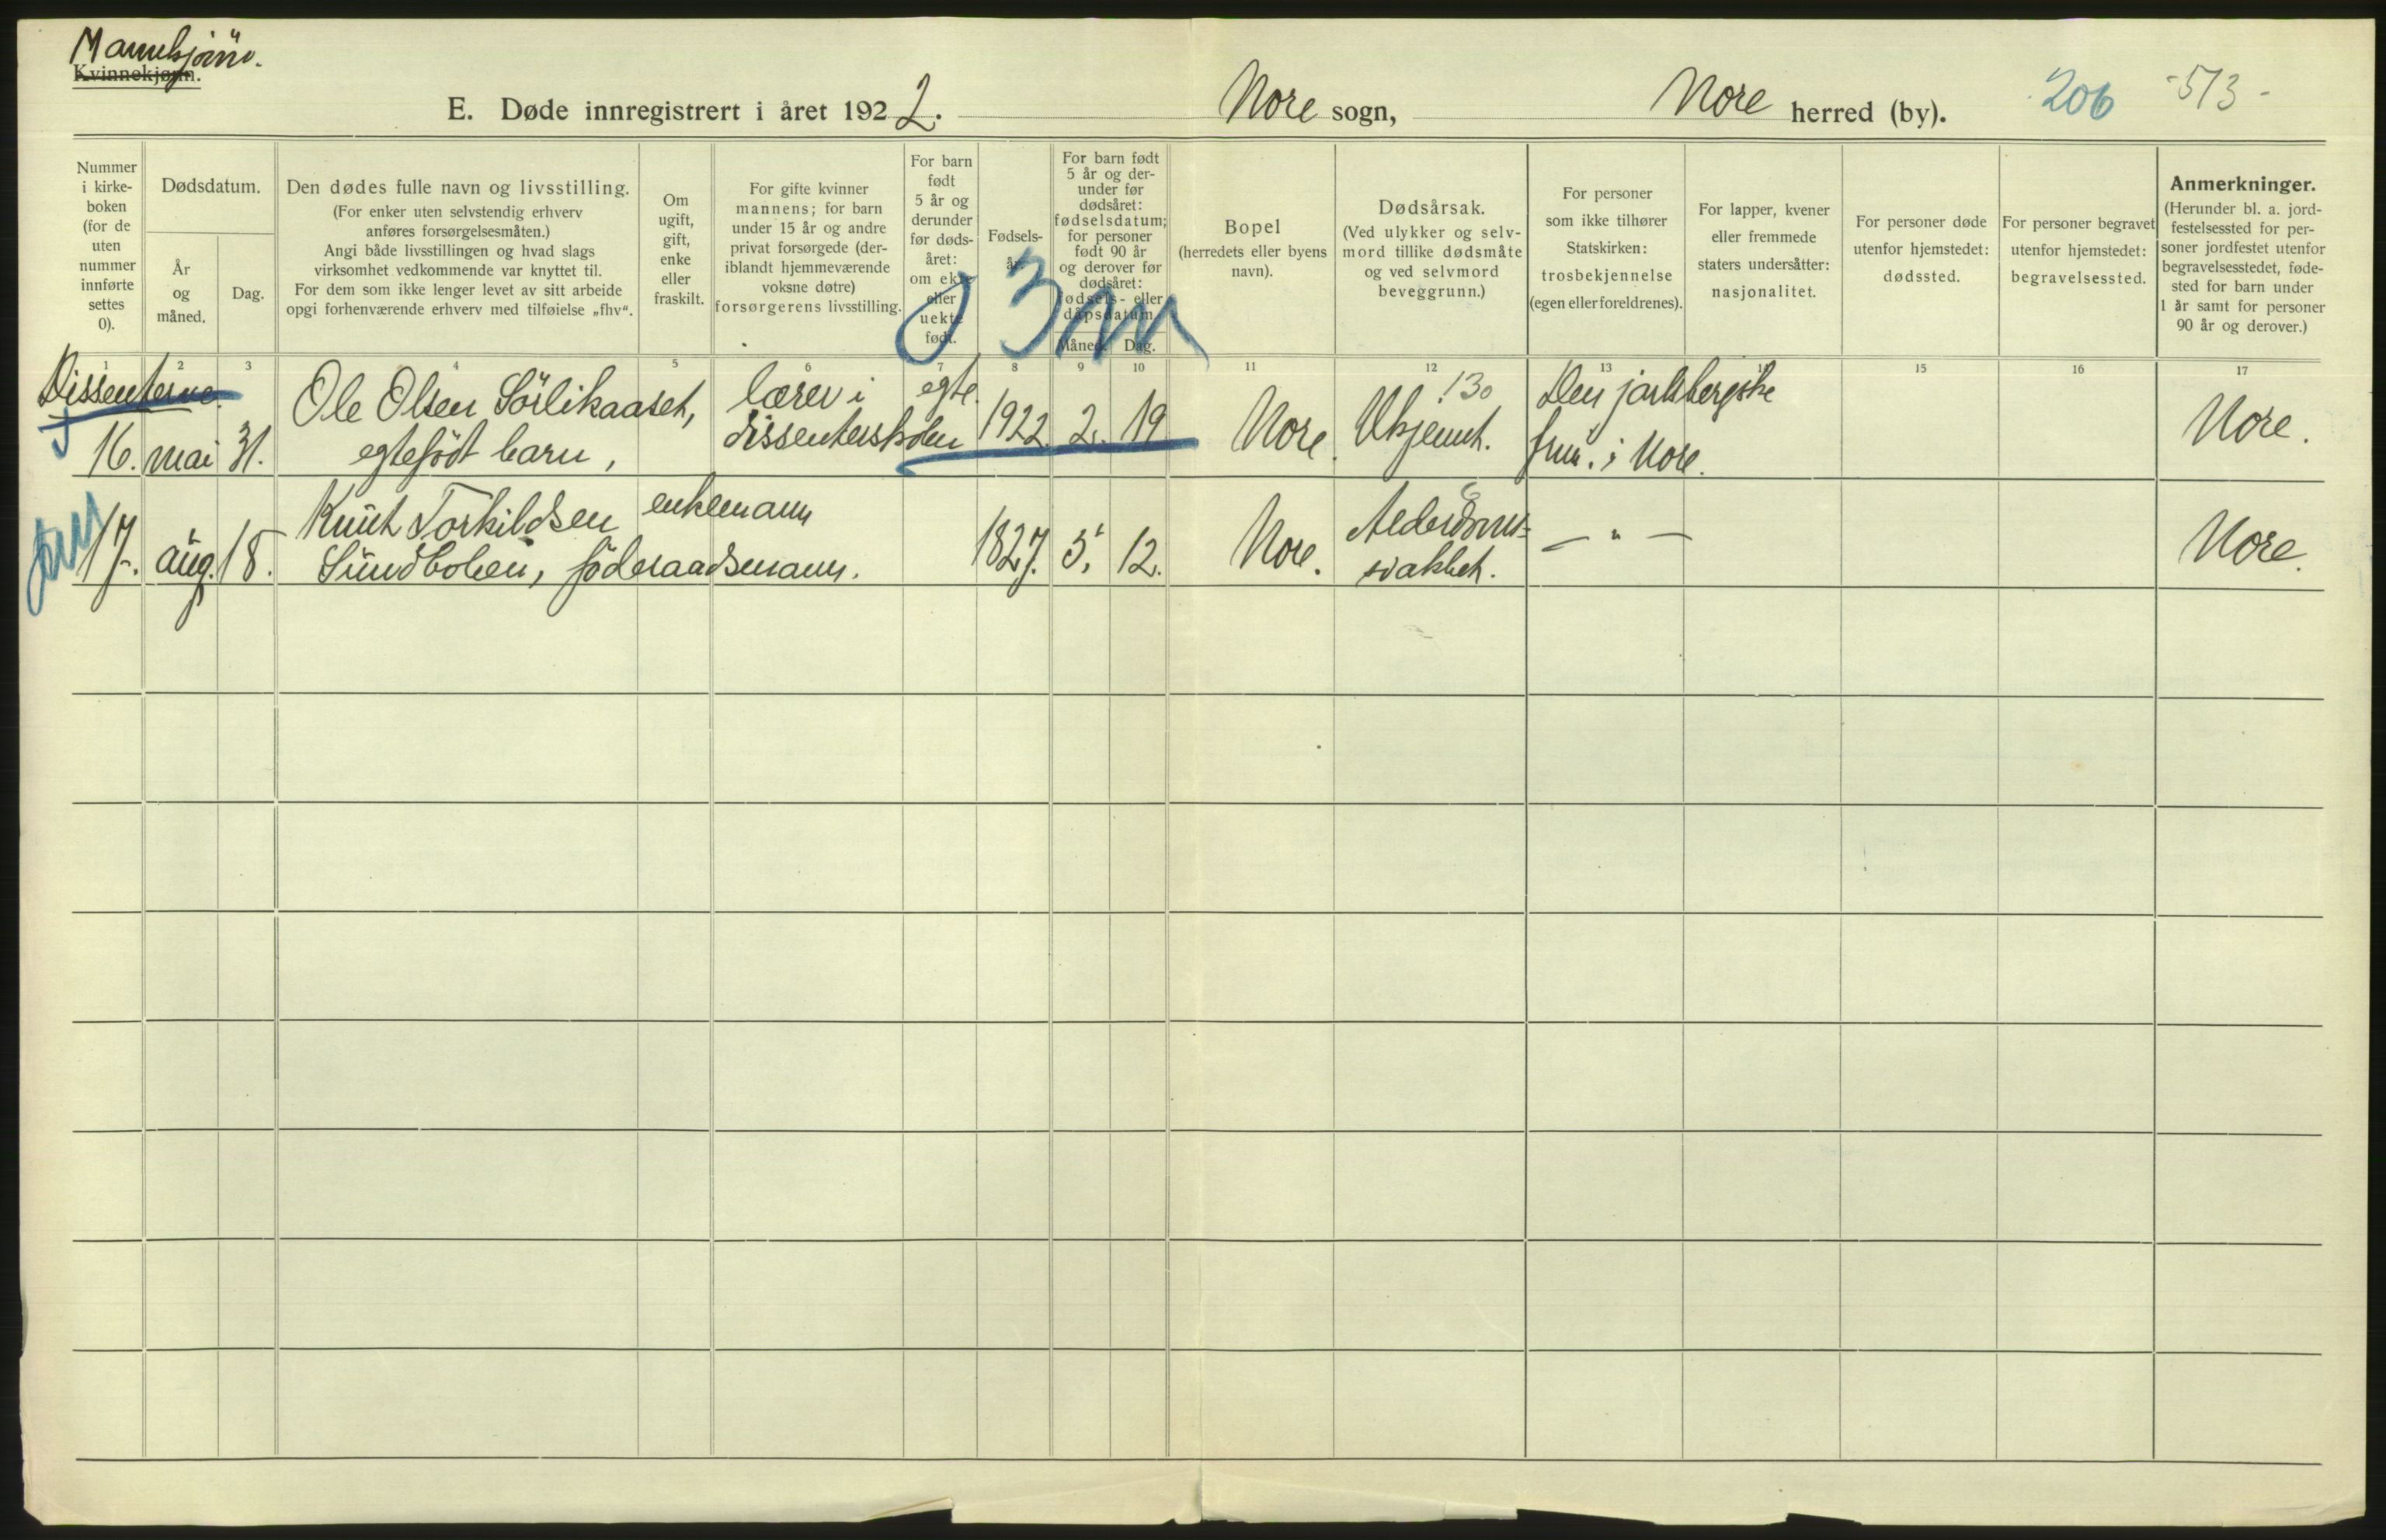 Mannkjønn.
Kvinnekjønn.
E. Døde innregistrert i året 1922. Nore sogn, Nore herred (by). 206 -513-
Nummer
i kirke-
boken
(for de
uten
nummer
innførte
settes
0).
Dødsdatum.
År
og
måned.
Dag.
Den dødes fulle navn og livsstilling.
(For enker uten selvstendig erhverv
anføres forsørgelsesmåten.)
Angi både livsstillingen og hvad slags
virksomhet vedkommende var knyttet til.
For dem som ikke lenger levet av sitt arbeide
opgi forhenværende erhverv med tilføielse „fhv“.
Om
ugift,
gift,
enke
eller
fraskilt.
For gifte kvinner
mannens; for barn
under 15 år og andre
privat forsørgede (der-
iblandt hjemmeværende
voksne døtre)
forsørgerens livsstilling.
For barn
født
5 år og
derunder
før døds-
året:
om ekte
eller
uekte
født.
Fødsels-
år.
For barn født
5 år og der-
under før
dødsåret:
fødselsdatum;
for personer
født 90 år
og derover før
dødsåret:
fødsels- eller
dåpsdatum
Måned.
Dag.
3 m
Bopel
(herredets eller byens
navn).
Dødsårsak.
(Ved ulykker og selv-
mord tillike dødsmåte
og ved selvmord
beveggrunn.)
For personer
som ikke tilhører
Statskirken:
trosbekjennelse
(egen eller foreldrenes).
For lapper, kvener
eller fremmede
staters undersåtter:
nasjonalitet.
For personer døde
utenfor hjemstedet:
dødssted.
For personer begravet
utenfor hjemstedet:
begravelsessted.
Anmerkninger.
(Herunder bl. a. jord-
festelsessted for per-
soner jordfestet utenfor
begravelsesstedet, føde-
sted for barn under
1 år samt for personer
90 år og derover.)
1 2 3 4 5 6 7 8 9 10 11 12 13 14 15 16 17
Dissenterne.
16. mai 31. Ole Olsen Sörlikaaset,
egtefödt barn,
lærer i
dissenterskolen
egte. 1922. 2. 19 Nore. Ukjennt. 130
Den jarlsbergske
frim. i Nore.
Nore.
17. aug. 18. Knut Torkildsen enkemann
Sundbolien, föderaadsmann.
1827. 5. 12. Nore. Alderdoms-
svakhet.
— " —
Nore.